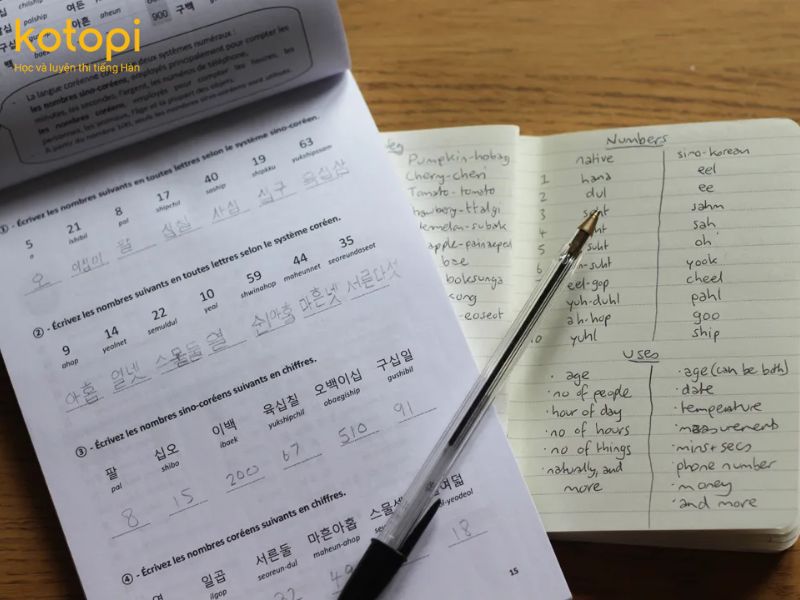 kotopi
Học và luyện thi tiếng Hàn
palship
여든
아흔
aheun
900
구백
La langue coréenne deux systèmes numéraux :
les nombres sino-coréens, employés principalement pour compter les
minutes, les secondes, l'argent, les numéros de téléphone,
les nombres coréens, employés pour compter les heures, les
personnes, les animaux, l'âge et la plupart des objets.
① - Écrivez les nombres suivants en toutes lettres selon le système sino-coréen.
5 21 8 17 40 19 63
o ishibil pal shipchil saship shipku yukshipssam
오 이십이 팔 십칠 사십 십구 육십삼
② - Écrivez les nombres suivants en toutes lettres selon le système coréen.
9 14 22 10 59 44 35
ahop yeolnet semuldul yeol shwinahop maheunnet seoreundaseot
아홉 열넷 스물둘 열 쉰아홉 마흔넷 서른다섯
③ - Écrivez les nombres sino-coréens suivants en chiffres.
팔 십오 이백 육십칠 오백이십 구십일
pal shibo ibaek yukshipchil obaegiship gushibil
8 15 200 67 510 91
④ - Écrivez les nombres coréens suivants en chiffres.
일곱 서른둘 마흔아홉
ilgop seoreun-dul maheun-ahop
32 49 18
15
Pumpkin-hobag
Cherry-cheri
Tomato-tomato
ttalgi
subak
bae
boksunga
Numbers
native sino-korean
1 hana eel
2 dul ee
3 sahm
4 sah
5 suht oh
6 yook
eel-gop cheel
yuh-duhl pahl
ah-hop goo
yuhl ship
Uses
· age · age (can be both)
· no of people · date
· hour of day · temperature
· no of hours · measurements
· no of things · mins + secs
· naturally, and · phone number
more · money
· and more